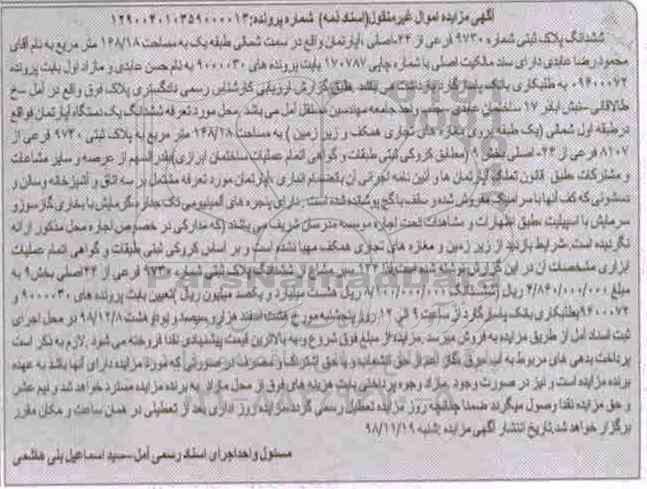 آگهی مزایده اموال غیرمنقول(اسناد ذمه) شماره پرونده:129004010359000013
ششدانگ پلاک ثبتی شماره 9730 فرعی از 24-اصلی ،آپارتمان واقع در سمت شمالی طبقه یک به مساحت 168/18 متر مربع به نام آقای
محمود رضا عابدی دارای سند مالکیت اصلی با شماره چاپی 170787 بابت پرونده های 9000030 به نام حسن عابدی و مازاد اول بابت پرونده
9400072 به طلبکاری بانک پاسارگارد بازداشت می باشد .طبق گزارش ارزیابی کارشناس رسمی دادگستری پلاک فوق واقع در آمل -خ
طالقانی-نبش اباذر 17 ساختمان عابدی جنب واحد جامعه مهندسین مستقل آمل می باشد .محل مورد تعرفه ششدانگ یک دستگاه آپارتمان واقع
درطبقه اول شمالی (یک طبقه بروی مغازه های تجاری همکف و زیر زمین ) به مساحت 168/18 متر مربع به پلاک ثبتی 9730 فرعی از
8107 فرعی از 24- اصلی بخش 9 (مطابق کروکی ثبتی طبقات و گواهی اتمام عملیات ساختمان ابرازی)بقدرالسهم از عرصه و سایر مشاعات
و مشترکات طبق قانون تملک آپارتمان ها و آئین نامه اجرائی آن باانضمام انباری ،آپارتمان مورد تعرفه مشتمل بر سه اتاق و آشپزخانه وسالن و
دستشوئی که کف آنها با سرامیک مفروش شده و سقف با گچ پوشانده شده است .دارای پنجره های آلمینیومی تک جداره،گرمایش با بخاری گازسوز و
سرمایش با اسپیلت ،طبق اظهارات و مشاهدات تحت اجاره موسسه مدرسان شریف می باشند (که مدارکی در خصوص اجاره محل مذکور ارائه
نگردیده است .شرایط بازدید از زیر زمین و مغازه های تجاری همکف مهیا نشده است و بر اساس کروکی ثبتی طبقات و گواهی اتمام عملیات
ابرازی مشخصات آن در این گزارش نوشته شده است)لذا 124 سیر مشاع از ششدانگ پلاک ثبتی شماره 9730 فرعی از 24اصلی بخش9 به
مبلغ 4/840/000/000 ریال (ششدانگ 8/100/000/000 ریال هشت میلیارد و یکصد میلیون ریال )تعیین بابت پرونده های 9000030 و
9400072بطلبکاری بانک پاسارگارد از ساعت 9 الی 12 روز پنجشنبه مورخ هشت اسفند هزارو سیصد و نود و هشت 98/12/8 در محل اجرای
ثبت اسناد آمل از طریق مزایده به فروش میرسد .مزایده از مبلغ فوق شروع و به بالاترین قیمت پیشنهادی نقدا فروخته می شود .لازم به ذکر است
پرداخت بدهی های مربوط به آب ،برق ،گاز اعم از حق انشعاب و یا حق اشتراک و مصرف در صورتی که مورد مزایده دارای آنها باشد به عهده
برنده مزایده است و نیز در صورت وجود مازاد وجوه پرداختی بابت هزینه های فوق از محل مازاد به برنده مزایده مسترد خواهد شد و نیم عشر
و حق مزایده نقدا وصول میگردد ضمنا چنانچه روز مزایده تعطیل رسمی گردد،مزایده روز اداری بعد از تعطیلی در همان ساعت و مکان مقرر
برگزار خواهد شد.تاریخ انتشار آگهی مزایده :شنبه 98/11/19
مسئول واحداجرای اسناد رسمی آمل-سید اسماعیل بنی هاشمی
ParsNamadData